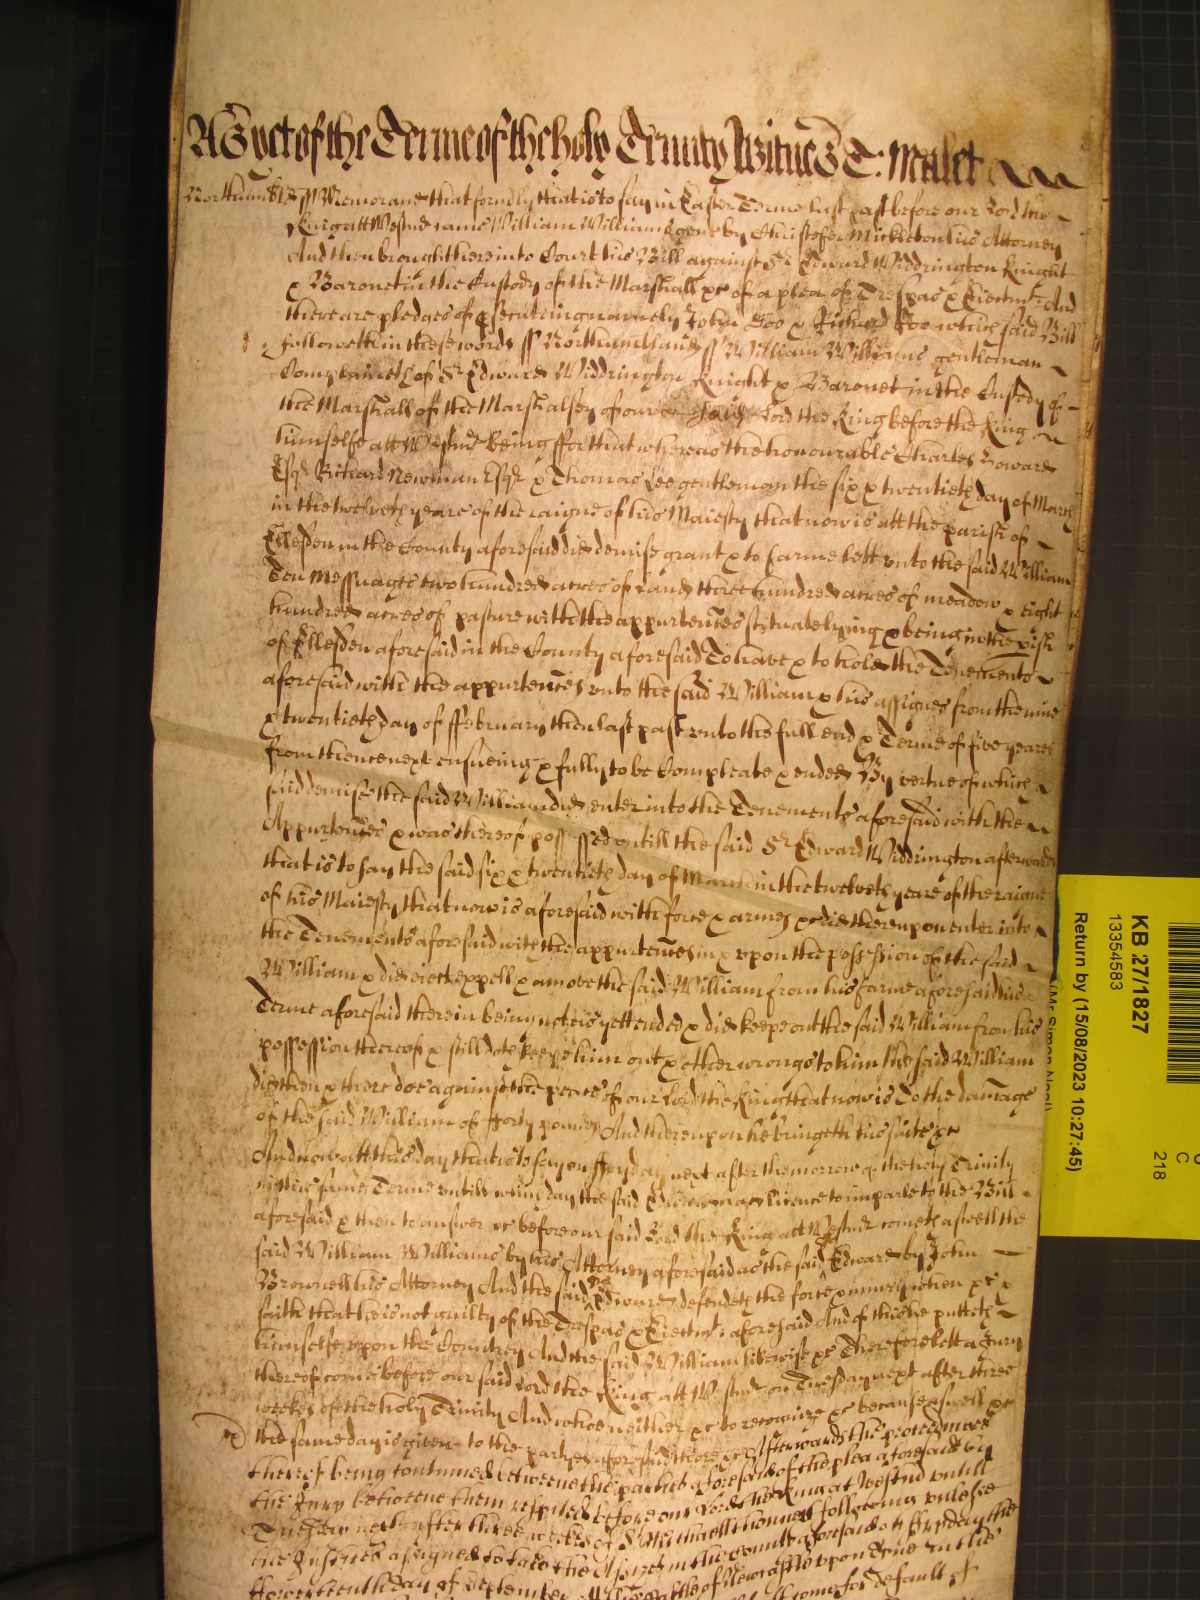 As yet of the Terme of the holy Trinity Witnes T: Malet
Northumbl ss Memorand that formrly that is to say in Easter Terme last past before our Lord the
King att Westmr came William Williams gent by Christofer Mickleton his Attorney
And then brought there into Court his Bill against Sr Edward Widdrington Knight
& Baronet in the Custody of the Marshall &c of a plea of Trespas & Eiectmt And
there are pledges of psecuteing namely John Doo & Richard Roo which said Bill
followeth in these words ss Northumbland ss William Williams gentleman
Complaineth of Sr Edward Widdrington Knight & Baronet in the Custody of
the Marshall of the Marshalsey of our Lord the King before the King
himselfe att Westmr being ffor that whereas the honourable Charles Howard
Esqr Richard Newman Esqr & Thomas Lee gentleman the six & twentieth day of March
in the twelveth yeare of the raigne of his Maiesty that now is att the parish of
Ellesden in the County aforesaid did demise grant & to farme lett unto the said William
Ten Messuages two hundred acres of Land three hundred acres of meadow & eight
hundred acres of pasture with the appurtences scituate lying & being in the pish
of Ellesden aforesaid in the County aforesaid To have & to hold the Tenements
aforesaid with the appurtences unto the said William & his assignes from the nine
& twentieth day of ffebruary then last past unto the full end & Terme of five yeares
from thence next ensueing & fully to be Compleate & ended By vertue of which
said demise the said William did enter into the Tenements aforesaid with the
Appurtences & was thereof possessed untill the said Sr Edward Widdrington afterwards
that is to say the said six & twentieth day of March in the twelveth yeare of the raigne
of his Maiesty that now is aforesaid with force & armes &c did thereupon enter into
the Tenements aforesaid with the appurtences in & upon the possession of the said
William & did eiect expell & amove the said William from his farme aforesaid his
Terme aforesaid therein being not as yett ended & did keepe out the said William from his
possession thereof & still doth keepe him out & other wrongs to him the said William
did then & there doe against the peace of our Lord the King that now is To the damage
of the said William of fforty pounds And thereupon he bringeth his suite &c
And now att this day that is to say on ffryday next after the morrow of the holy Trinity
in this same Terme untill which day the said Edward had licence to imparle to the Bill
aforesaid & then to answer &c before our said Lord the King att Westmr cometh aswell the
said William Williams by his Attorney aforesaid as the said Edward by John
Brownell his Attorney And the said Edward defendeth the force & iniury when &c &
saith that he is not guilty of the Trespas & Eiectmt aforesaid And of this he putteth
himselfe upon the Countrey And the said William likewise &c Therefore lett a Jury
thereof come before our said Lord the King att Westmr on Tuesday next after three
weekes of the holy Trinity And who neither &c to recognize &c because aswell &c
the same day is given to the partyes aforesaid there &c Afterwards the proces
thereof being continued betweene the parties aforesaid of the plea aforesaid by
the Jury betweene them respited before our Lord the King at Westmr untill
Tuesday next after three weekes of St Michaell thennext following unlesse
the Justices assigned to take the Assizes in the County aforesaid on ffryday the
day of September Castle of Newcastle upon Tyne in the
come for default of
KB 27/1827
13354583
Return by (15/08/2023 10:27:45)
C
218